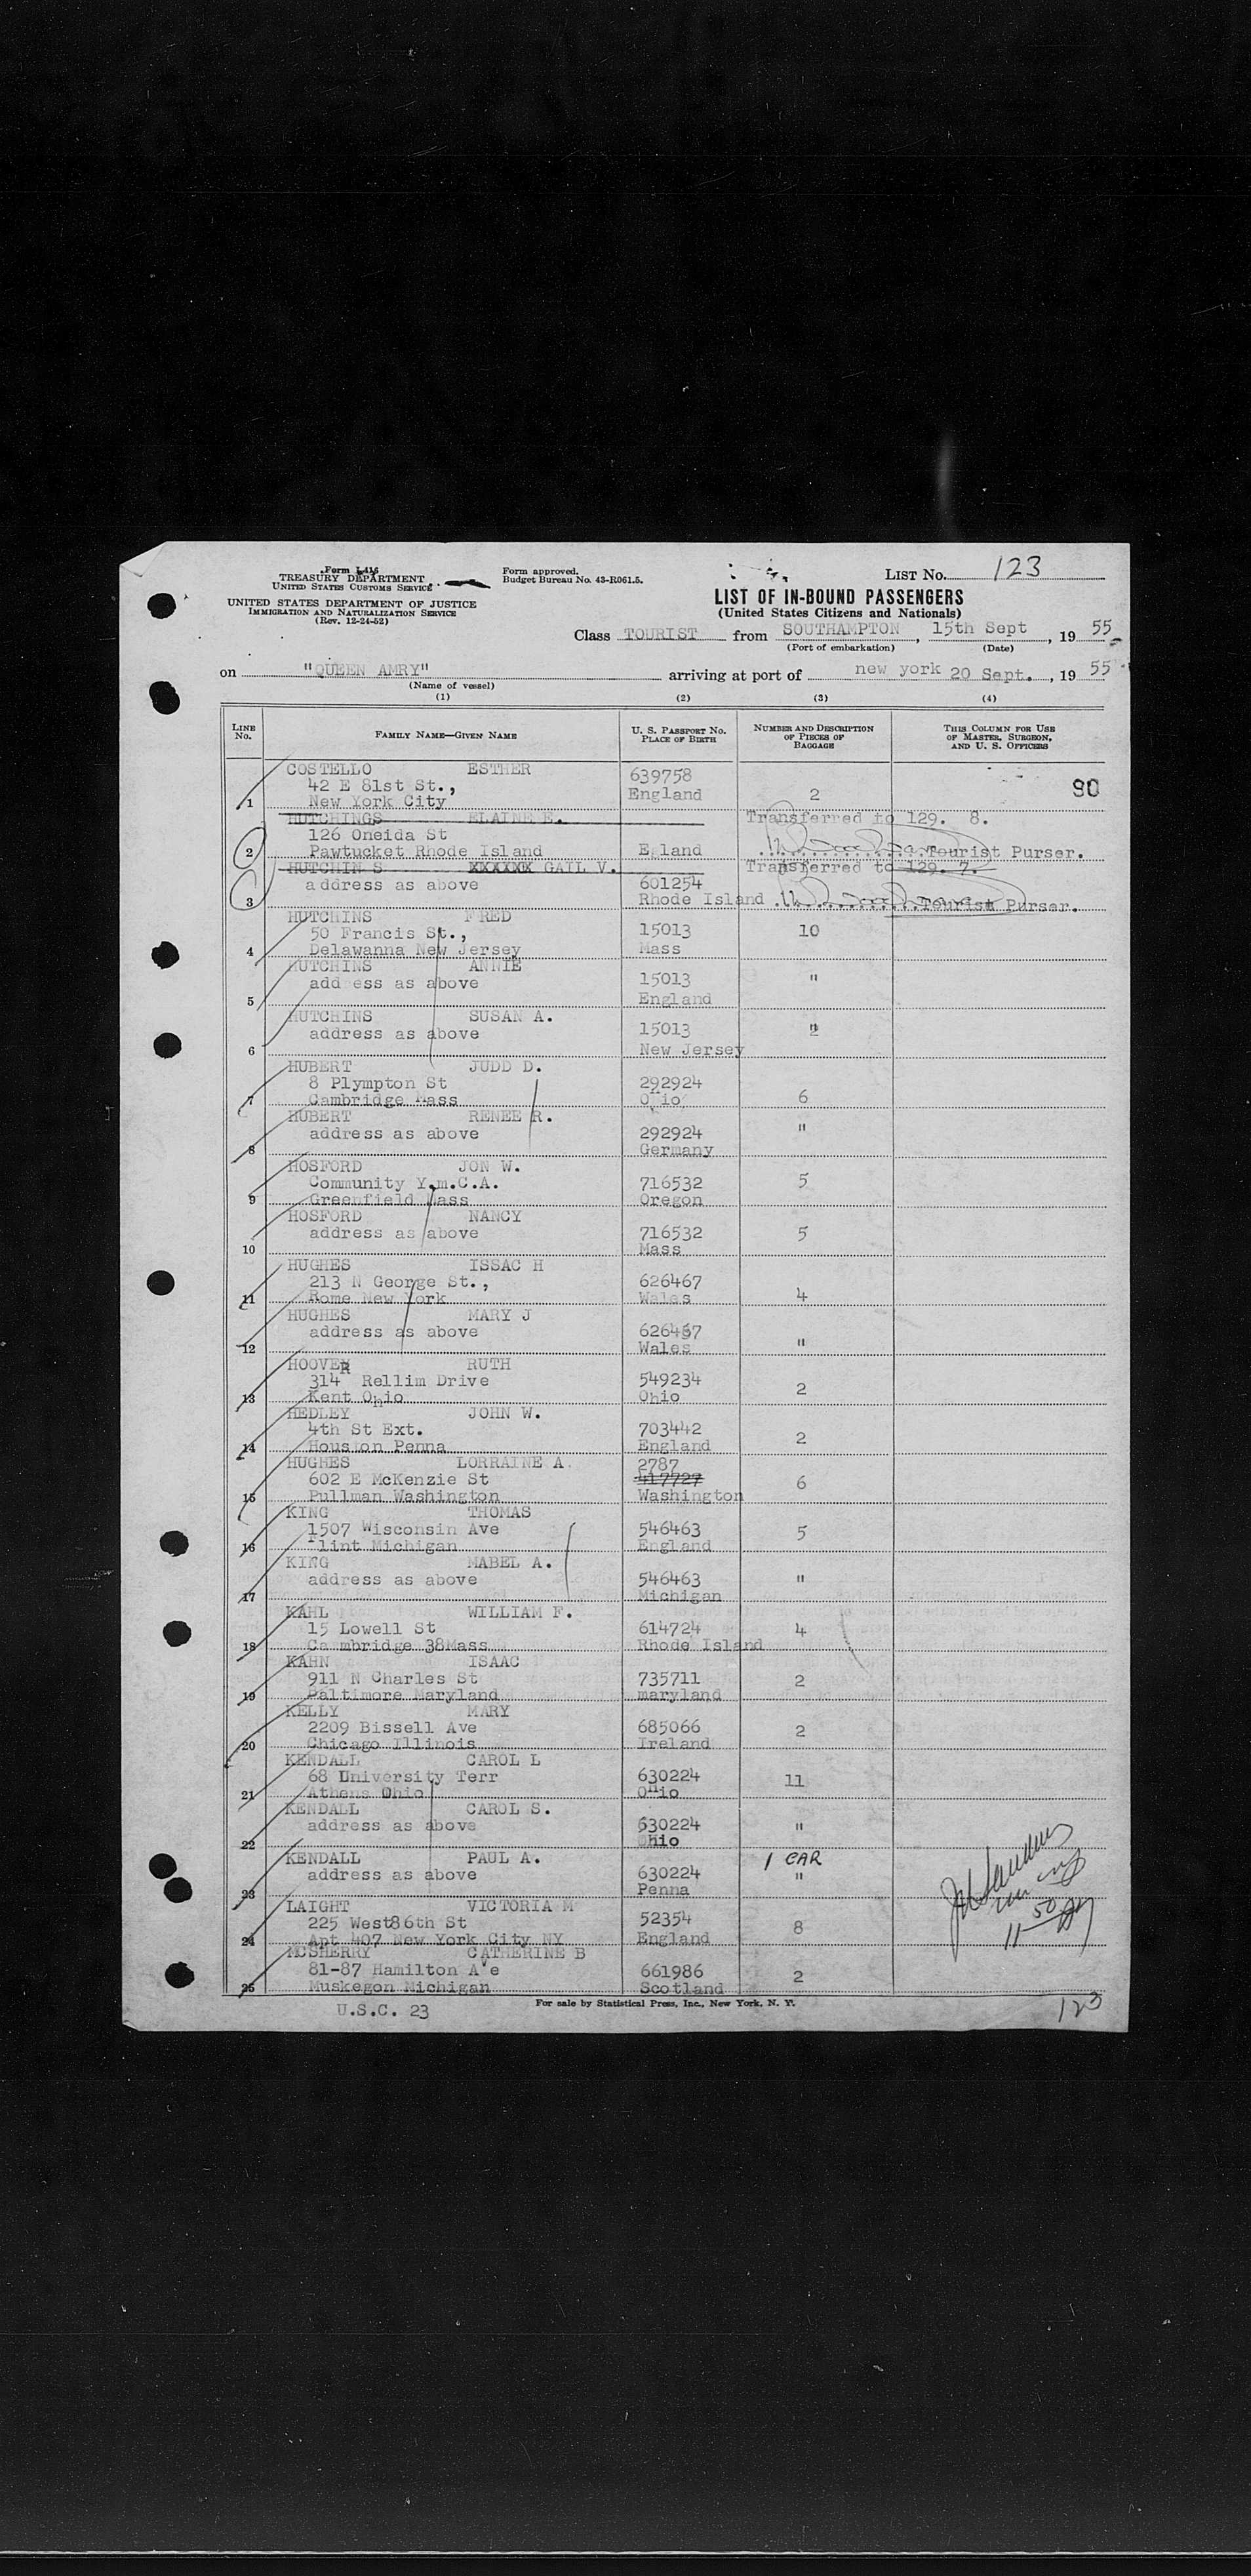 Form I-416
TREASURY DEPARTMENT
UNITED STATES CUSTOMS SERVICE
UNITED STATES DEPARTMENT OF JUSTICE
IMMIGRATION AND NATURALIZATION SERVICE
(Rev. 12-24-52)
Form approved.
Budget Bureau No. 43-R061.5.
LIST NO. 123
LIST OF IN-BOUND PASSENGERS
(United States Citizens and Nationals)
Class TOURIST from SOUTHAMPTON, 15th Sept, 19 55
(Port of embarkation) (Date)
on "QUEEN AMRY" arriving at port of new york 20 Sept., 19 55
(Name of vessel)
(1) (2) (3) (4)
LINE NO. FAMILY NAME—GIVEN NAME U. S. PASSPORT NO. PLACE OF BIRTH NUMBER AND DESCRIPTION OF PIECES OF BAGGAGE THIS COLUMN FOR USE OF MASTER, SURGEON, AND U. S. OFFICERS
COSTELLO ESTHER 639758
42 E 81st St., England 90
1 New York City 2
HUTCHINGS ELAINE E. Transferred to 129. 8.
126 Oneida St
2 Pawtucket Rhode Island E gland Tourist Purser.
HUTCHIN S XXXXXX GAIL V. Transferred to 129. 7.
address as above 601254
3 Rhode Island Tourist Purser.
HUTCHINS FRED
50 Francis St., 15013 10
4 Delawanna New Jersey Mass
HUTCHINS ANNIE
add ess as above 15013 "
5 England
HUTCHINS SUSAN A.
address as above 15013 "
6 New Jersey
HUBERT JUDD D.
8 Plympton St 292924
7 Cambridge Mass Ohio 6
HUBERT RENEE R. "
address as above 292924
8 Germany
HOSFORD JON W.
Community Y.m.C.A. 716532 5
9 Greenfield Mass Oregon
HOSFORD NANCY
address as above 716532 5
10 Mass
HUGHES ISSAC H
213 N George St., 626467
11 Rome New York Wales 4
HUGHES MARY J
address as above 626467
12 Wales "
HOOVER RUTH
314 Rellim Drive 549234
13 Kent Ohio Ohio 2
HEDLEY JOHN W.
4th St Ext. 703442
14 Houston Penna England 2
HUGHES LORRAINE A. 2787
602 E McKenzie St 417727 6
15 Pullman Washington Washington
KING THOMAS
1507 Wisconsin Ave 546463 5
16 Flint Michigan England
KING MABEL A.
address as above 546463 "
17 Michigan
KAHL WILLIAM F.
15 Lowell St 614724 4
18 Cambridge 38Mass Rhode Island
KAHN ISAAC
911 N Charles St 735711 2
19 Baltimore Maryland maryland
KELLY MARY
2209 Bissell Ave 685066 2
20 Chicago Illinois Ireland
KENDALL CAROL L
68 University Terr 630224 11
21 Athens Ohio Ohio
KENDALL CAROL S.
address as above 630224 "
22 Ohio
KENDALL PAUL A. 1 CAR
address as above 630224 "
23 Penna
LAIGHT VICTORIA M
225 West86th St 52354 8
24 Apt 407 New York City NY England
MCSHERRY CATHERINE B
81-87 Hamilton A e 661986 2
25 Muskegon Michigan Scotland
U.S.C. 23 For sale by Statistical Press, Inc., New York, N. Y. 123